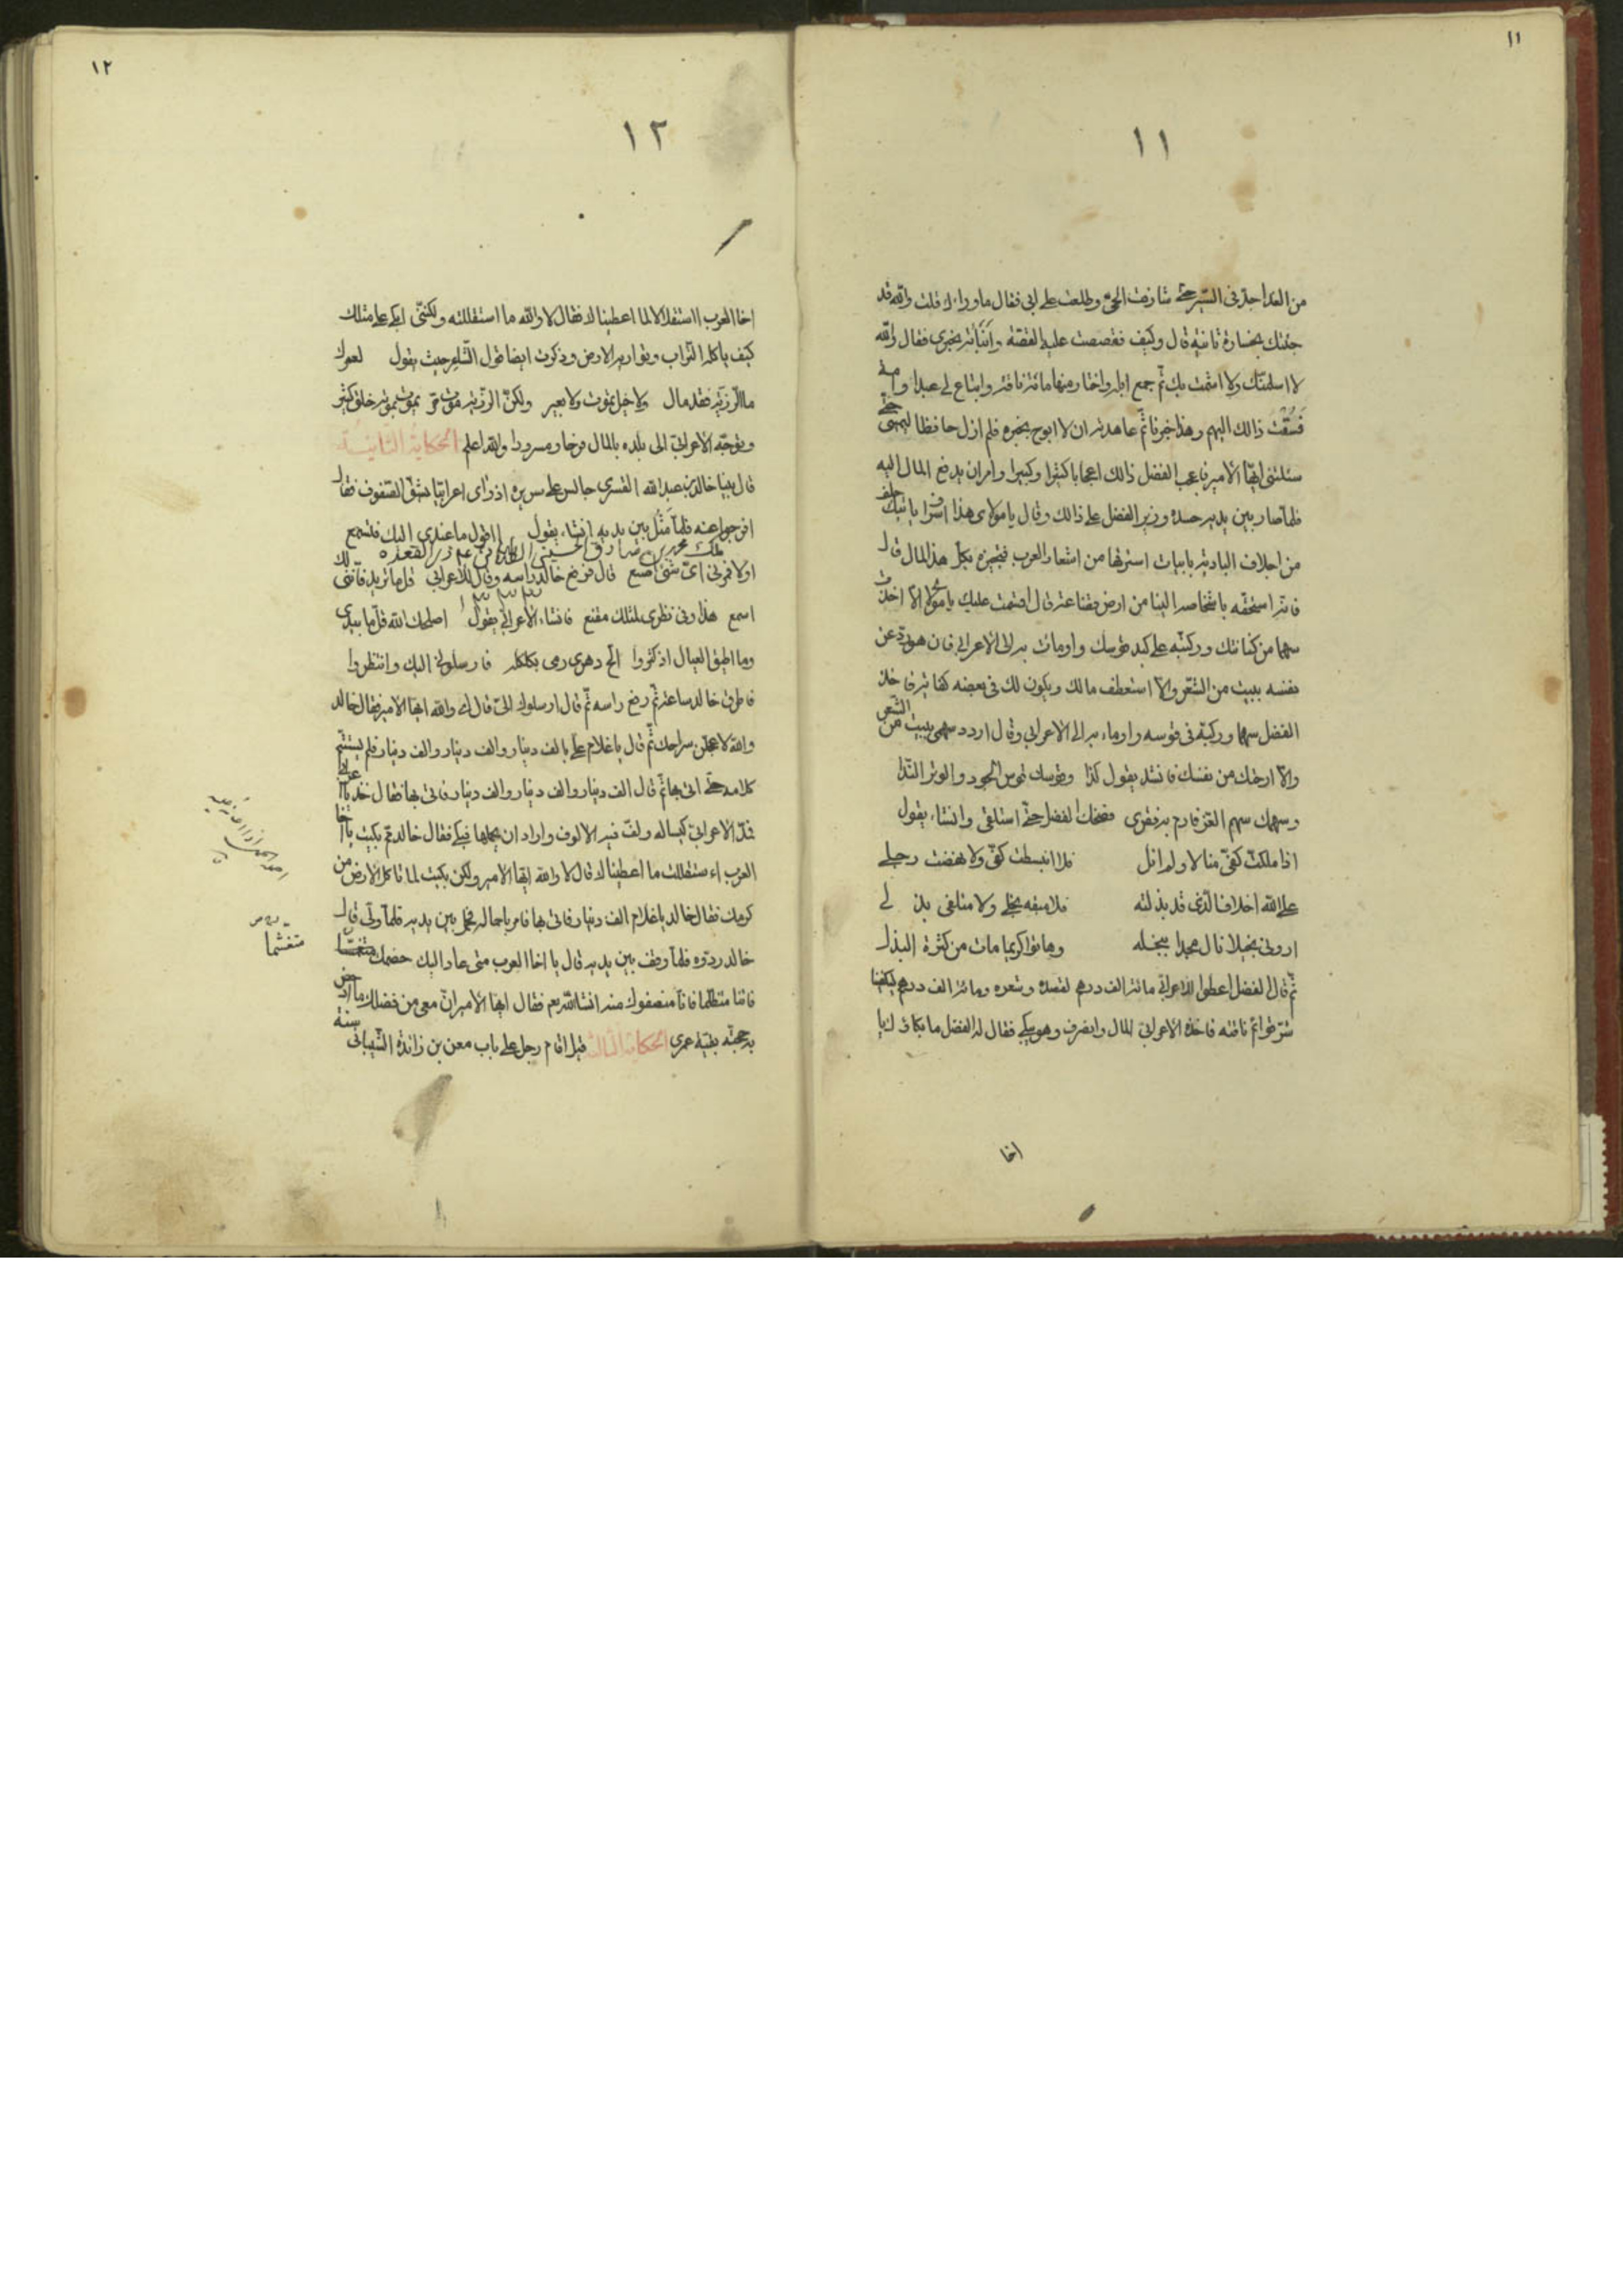 ١١
١١
من الغد اجدّ فى السّير حتّى شارفت الحىّ وطلعت على ابى فقال ماوراءك قلت والله قد
جئتك بخسارة ثانية قال وكيف فقصصت عليه القصّة وأنبأته بخبرى فقال والله
لا اسلمتك ولا اشمت بك ثم جمع ابله واختار منها مائة ناقة وابتاع لى عبدا وامة
فسقت ذالك اليهم وهذا خبرنا ثم عاهدته ان لا ابوح بخبره فلم ازل حافظا ليمينى حتّى
سئلتنى ايّها الأمير فاعجب الفضل ذالك اعجابا كثيرا وكبيرا وامر ان يدفع المال اليه
فلمّا صار بين يديه حسده وزير الفضل على ذالك وقال يا مولاى هذا اسرافا يأتيك جلف
من اجلاف البادية بابيات استرقها من اشعار العرب فتجيزه بكل هذا المال قال
فانّه استحقّه باشخاصه الينا من ارض قضاعة قال اقسمت عليك يا مولاى الّا اخذت
سهما من كنانتك وركبته على كبد قوسك واومأت به الى الأعرابى فان هو ردّ عن
نفسه ببيت من الشّعر والّا استعطف مالك ويكون لك فى بعضه كفاية فاخذ
الفضل سهما وركّبه فى قوسه واومأ به الى الاعرابى وقال اردد سهمى ببيت من الشّعر
والّا ارحتك من نفسك فانشد يقول كذا وقوسك قوس الجود والوتر النّدا
وسهمك سهم العزّ فارم به فقرى فضحك الفضل حتّى استلقى وانشاء يقول
اذا ملكت كفّى منالا ولم انل فلا انبسطت كفّى ولا نهضت رجلى
على الله اخلاف الّذى قد بذلته فلا مبقه بخلى ولا متلفى بذلى
ارونى بخيلا نال مجدا ببخله وهاتوا كريما مات من كثرة البذل
ثمّ قال الفضل اعطوا للأعرابى مائة الف درهم لقصده وشعره ومائة الف درهم ليكفينا
شرّ قوائم ناقته فاخذ الأعرابى المال وانصرف وهو يبكى فقال له الفضل ما بكاؤك يا
اخا
١٢
١٢
اخا العرب ااستقلالا لما اعطيناك فقال لا والله ما استقللته ولكنّنى ابكى على مثلك
كيف يأكله التراب وتواريه الارض وذكرت ايضا قول الشّاعر حيث يقول لعمرك
ما الرّزيّة فقد مال ولا خيل يموت ولا بعير ولكنّ الرّزيّة موت حرّ يموت بموته خلق كثير
وتوجّه الأعرابىّ الى بلده بالمال فرحا ومسرورا والله اعلم الحكاية الثّانية
قال بينا خالد بن عبد الله القسرى جالس على سريره اذ رأى اعرابيّا يشقّ الصّفوف فقال
افرجوا عنه فلمّا مثل بين يديه انشاء يقول ااقول ما عندى اليك فتسمع
اولا فمرنى اىّ شىء اصنع قال فرفع خالد رأسه وقال للأعرابى قل ما تريد فانّنى لك
اسمع هذا وفى نظرى لمثلك مقنع فانشاء الأعرابى يقول اصلحك الله قلّ ما بيدى
وما اطيق العيال اذ كثروا الحّ دهرى رمى بكلكله فارسلونى اليك وانتظروا
فاطرق خالد ساعة ثمّ رفع راسه ثمّ قال ارسلوك الىّ قال اى والله ايّها الامير فقال خالد
والله لاعجلن سراحك ثمّ قال يا غلام علىّ بالف دينار والف دينار والف دينار فلم يستتم
كلامه حتّى اتى بها ثمّ قال الف دينار والف دينار والف دينار فاتى بها فقال خذ يا اعرابى
فمدّ الاعرابىّ كساله ولفّ فيه الالوف واراد ان يحملها فبكى فقال خالد ممّ بكيت يا اخا
العرب اءستقللت ما اعطيناك قال لا والله ايّها الامير ولكن بكيت لما تاكل الأرض من
كرمك فقال خالد يا غلام الف دينار فاتى بها فامر باحماله فحمل بين يديه فلمّا ولّى قال
خالد ردّوه فلمّا وقف بين يديه قال يا اخا العرب متى عاد اليك خصمك
متغشّما
فاتنا متظلّما فانّا منصفوك منه انشاالله نعم فقال ايّها الأمير انّ معى من فضلك ما ادحض
به حجّته بقيّة عمرى الحكاية الثالثة قيل اقام رجل على باب معن بن زائدة الشّيبانى سنة